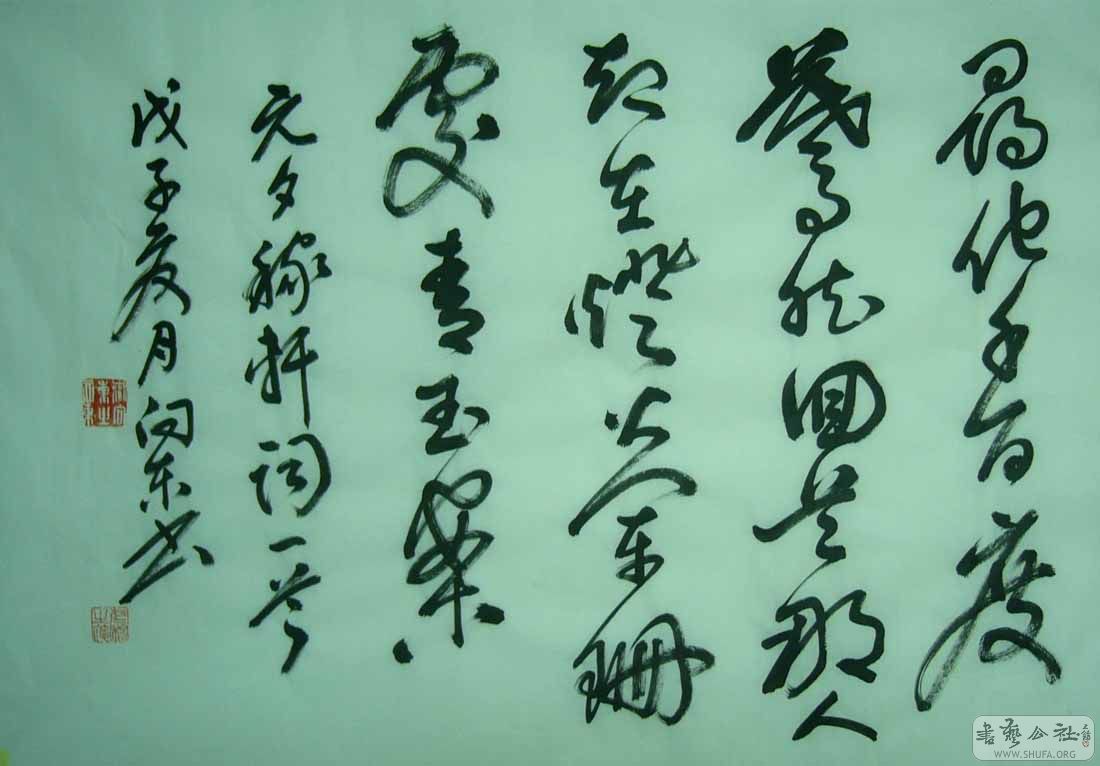 尋他千百度
驀然回首那人
却在燈火闌珊
處青玉案
元夕稼軒詞一首
戊子夏月向东书
書藝公社
WWW.SHUFA.ORG